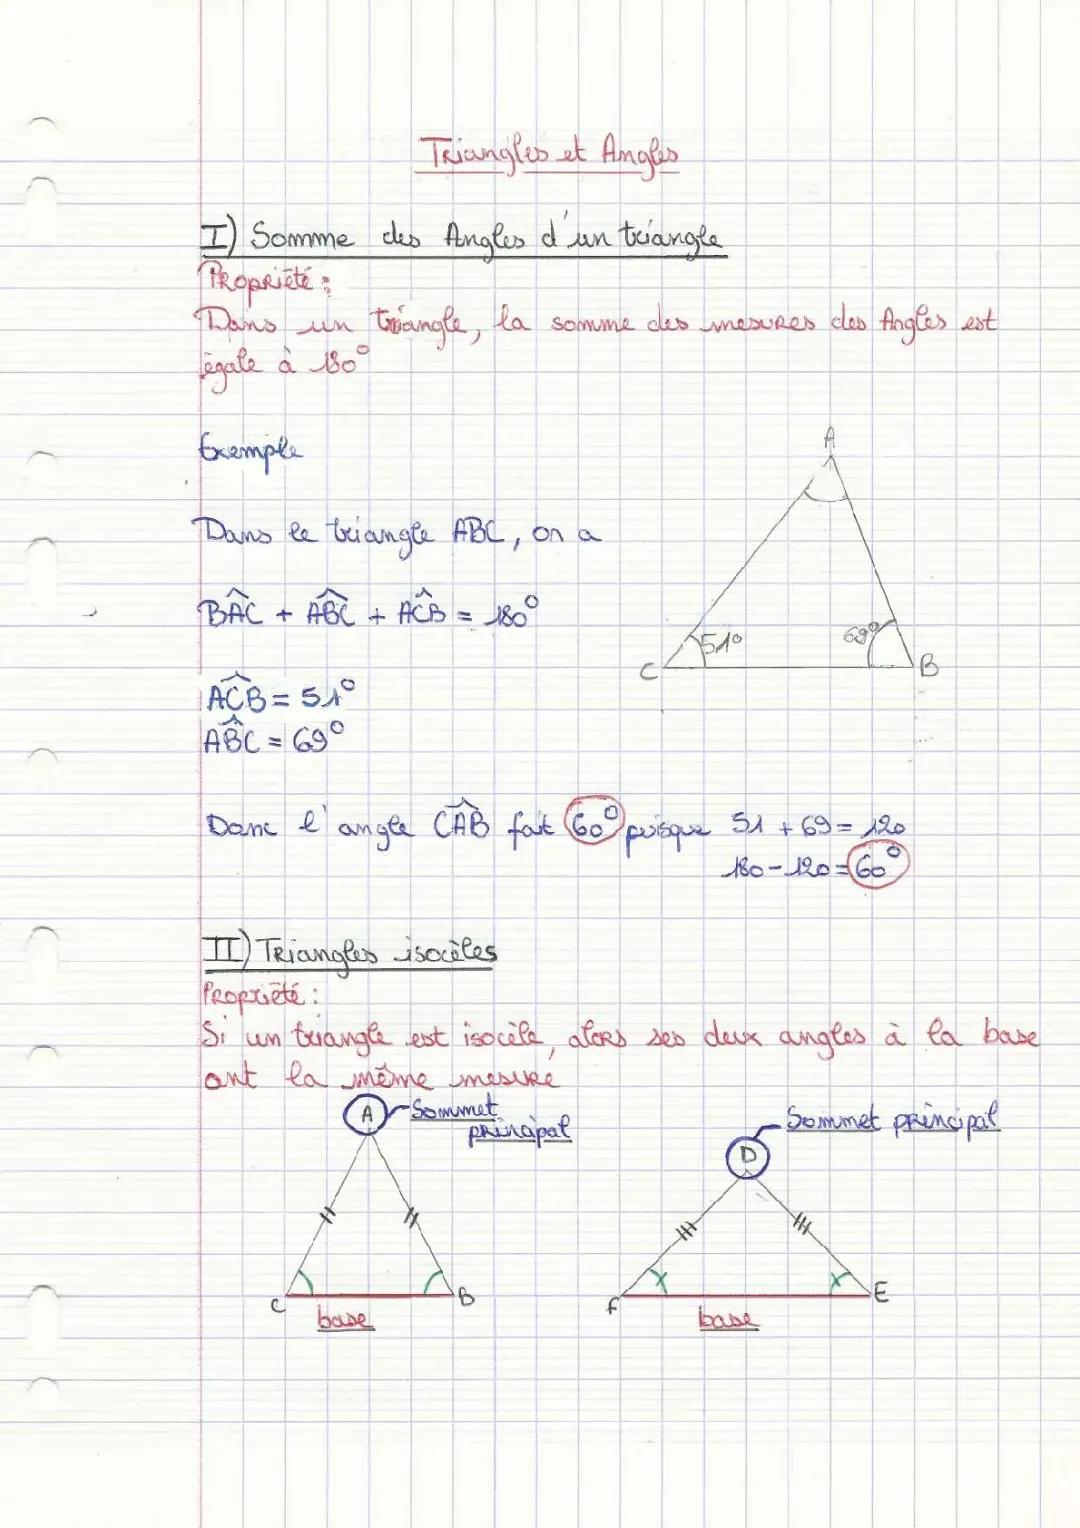 Triangles et Angles
I) Somme des Angles d'un triangle
Propriété :
Dans un triangle, la somme des mesures des Angles est
égale à 180°
Exemple
A
Dans le triangle ABC, on a
BÂC + AB̂C + AĈB = 180°
51°
69°
C
B
AĈB = 51°
AB̂C = 69°
Donc l'angle CÂB fait 60° puisque 51 + 69 = 120
180 - 120 = 60°
II) Triangles isocèles
Propriété :
Si un triangle est isocèle, alors ses deux angles à la base
ont la même mesure
A
Sommet
principal
Sommet principal
D
C
B
F
E
base
base